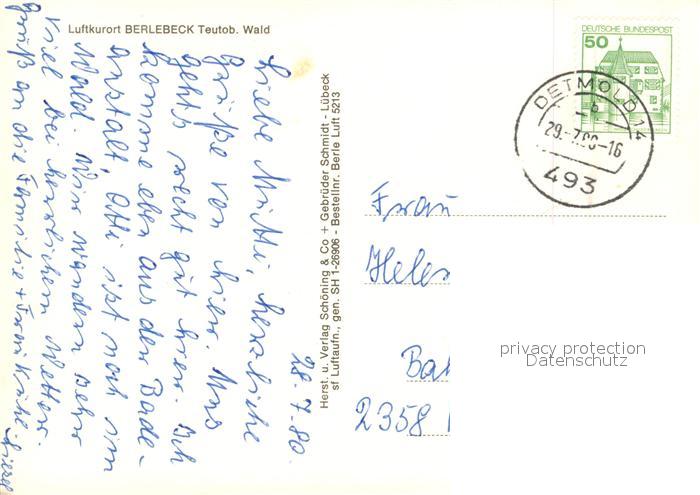 Luftkurort BERLEBECK Teutob. Wald
28.7.80.
Liebe Mutti, herzliche
Grüße von hier. Uns
geht's recht gut hier. Ich
komme eben aus der Bade-
anstalt, Otti ist noch im
Wald. Wir wandern sehr
viel bei herrlichem Wetter.
Gruß an die Familie + Frau
Herst. u. Verlag Schöning & Co + Gebrüder Schmidt - Lübeck
sf Luftaufn., gen. SH 1-26906 - Bestellnr. Berle Luft 5213
DEUTSCHE BUNDESPOST
50
DETMOLD 14
b
29.-7.80-16
493
Frau
Helen
Ba
2358
privacy protection
Datenschutz